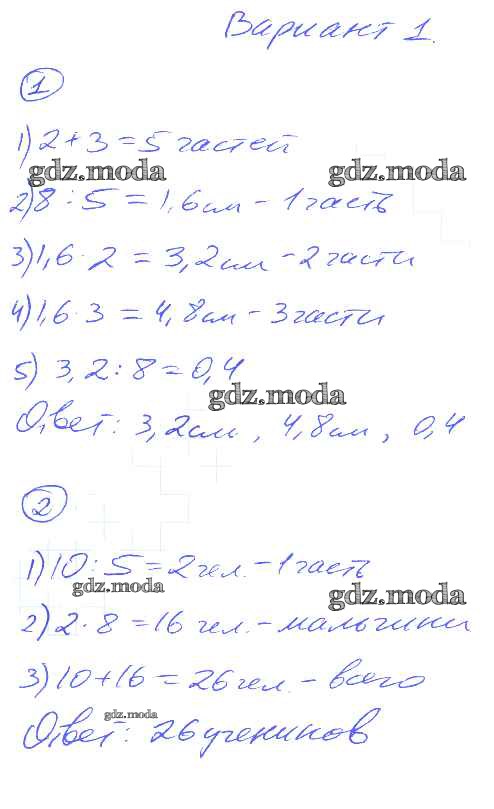 Вариант 1.
1
1) 2 + 3 = 5 частей
gdz.moda gdz.moda
2) 8 : 5 = 1,6 см - 1 часть
3) 1,6 · 2 = 3,2 см - 2 части
4) 1,6 · 3 = 4,8 см - 3 части
5) 3,2 : 8 = 0,4
gdz.moda
Ответ: 3,2 см, 4,8 см, 0,4
2
1) 10 : 5 = 2 чел. - 1 часть
gdz.moda gdz.moda
2) 2 · 8 = 16 чел. - мальчики
3) 10 + 16 = 26 чел. - всего
gdz.moda
Ответ: 26 учеников